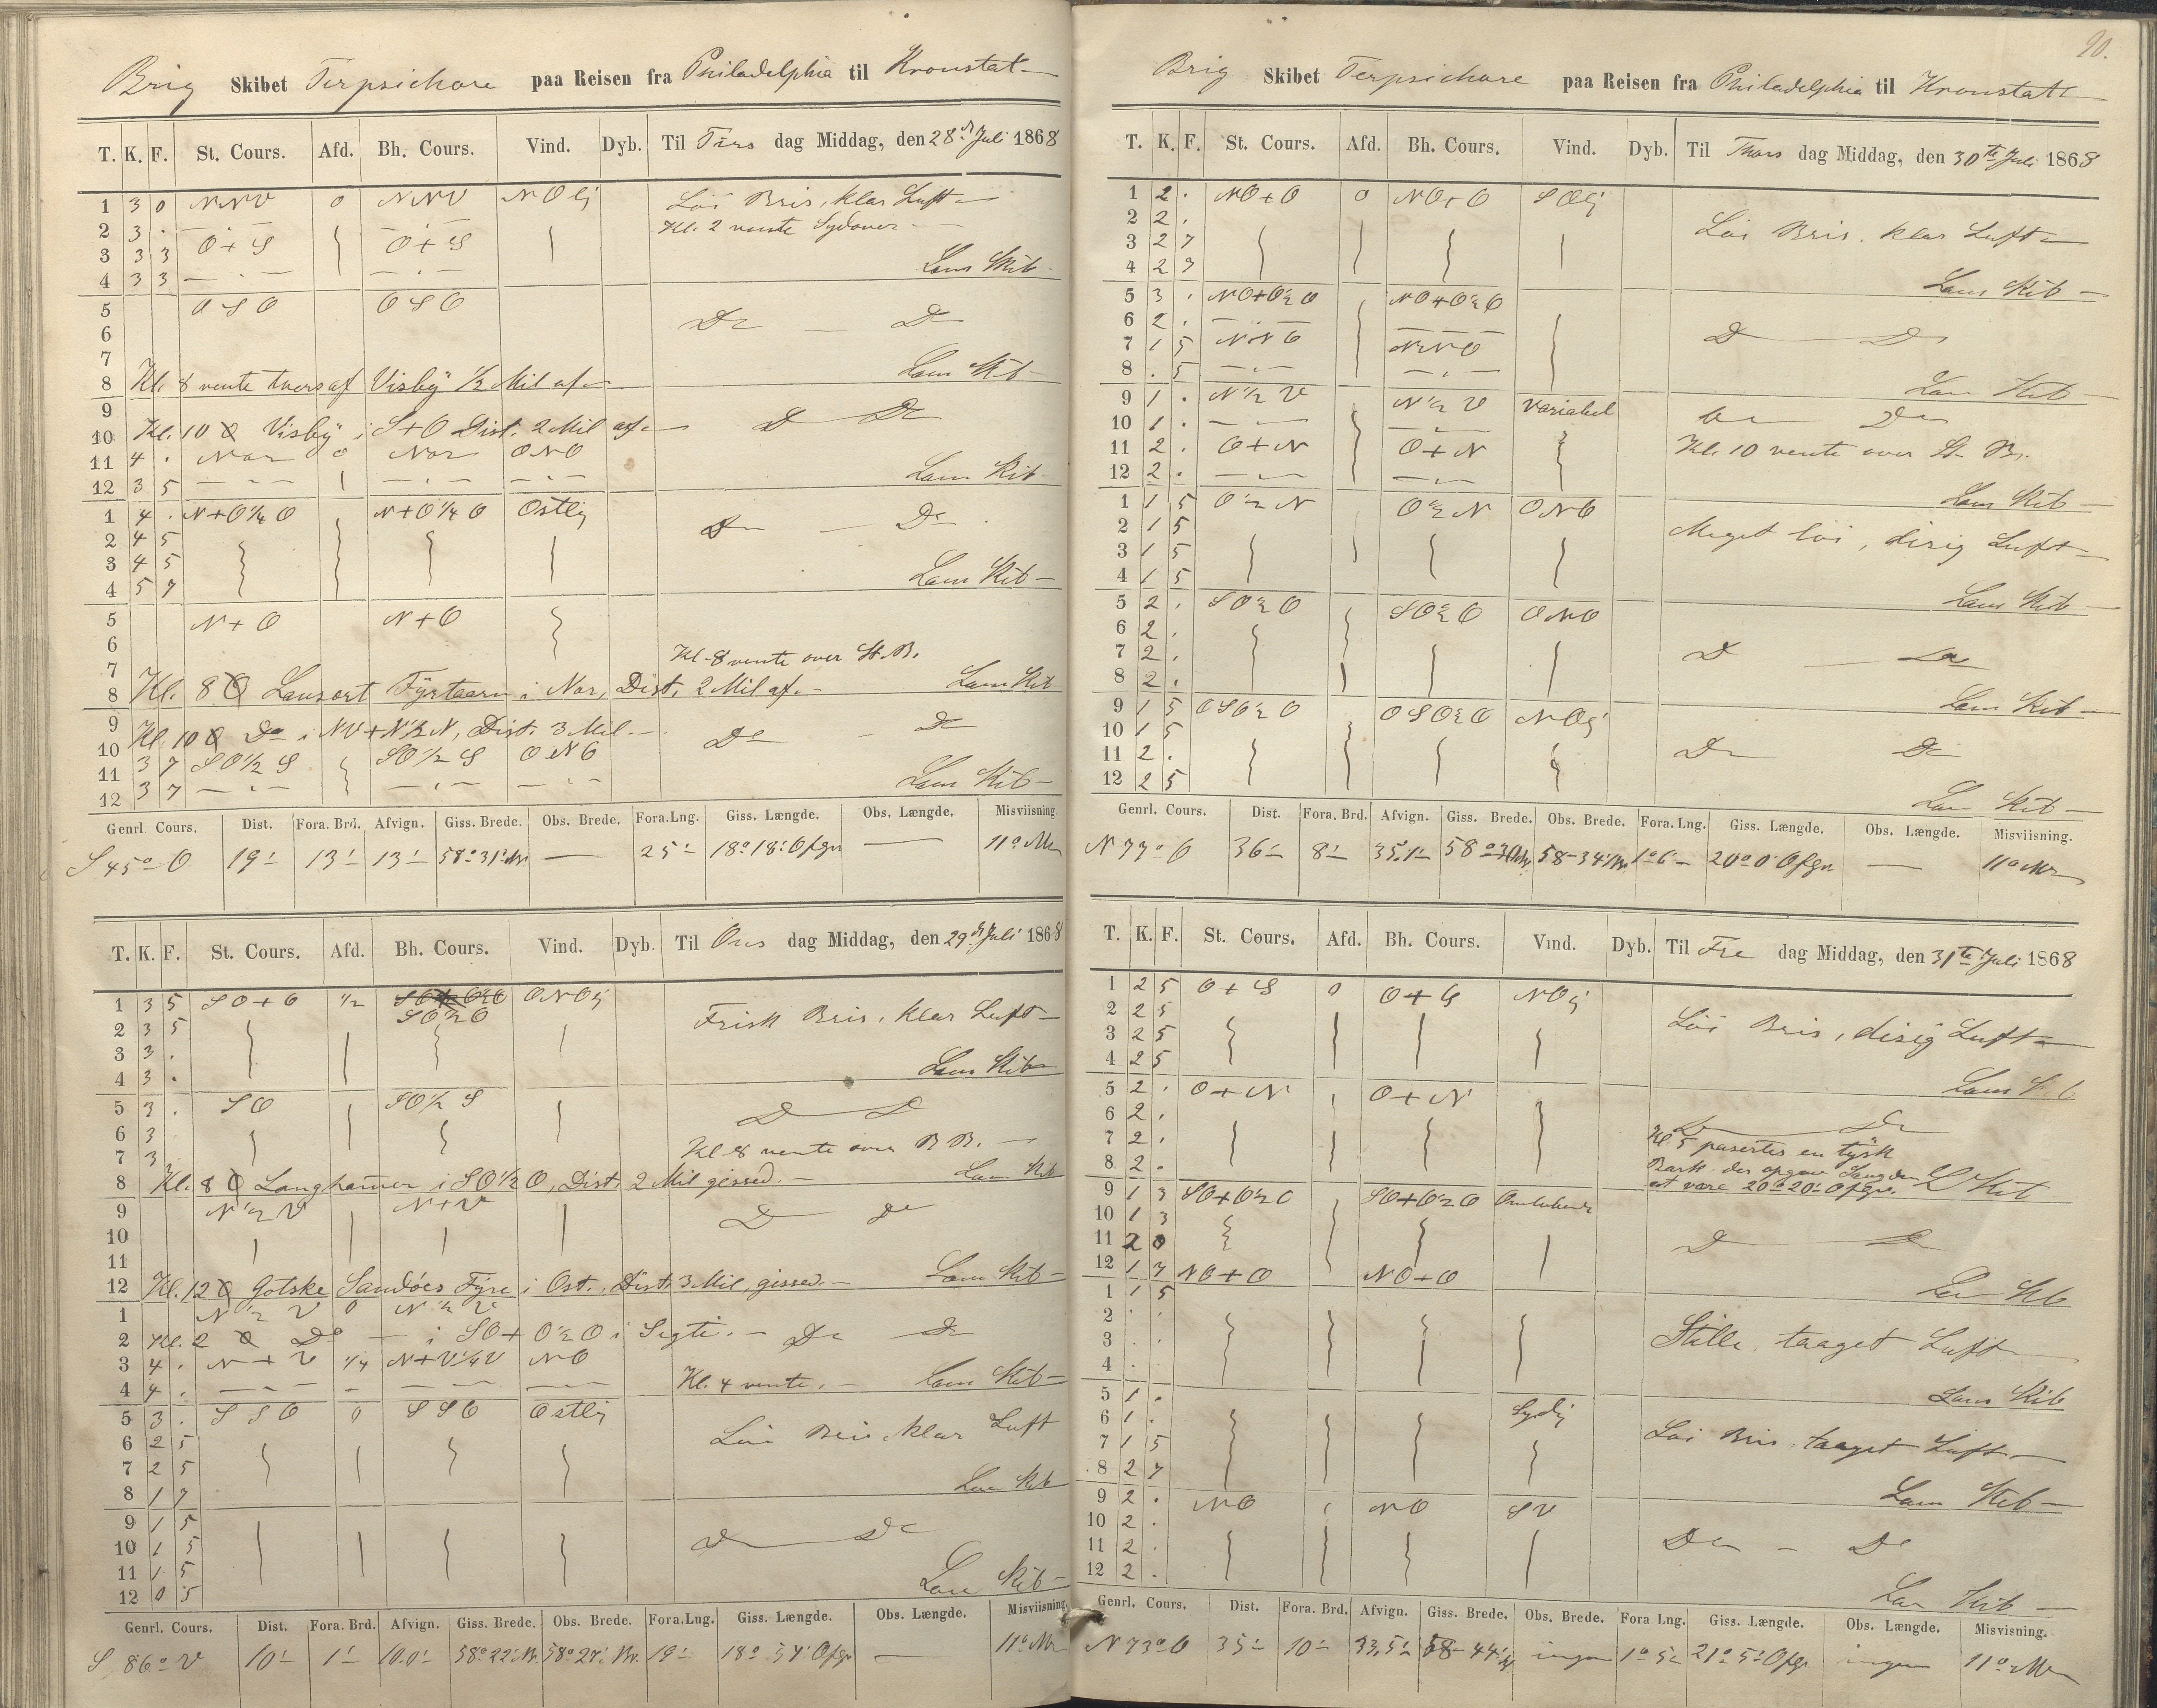 Brig Skibet Terpsichore paa Reisen fra Philadelphia til Kronstat
T. K. F. St. Cours. Afd. Bh. Cours. Vind. Dyb. Til Tirs dag Middag, den 28de Juli 1868
1 3 0 NNV 0 NNV NOlij Løi Bris, klar Luft
2 3 . Kl. 2 vente Sydover
3 3 3 O+S O+S
4 3 3 Lens Kib
5 OSO OSO
6 Do Do
7
8 Kl. 8 vente tvers af Visbÿ 1/2 Mil af Lens Kib
9
10 Kl. 10 Visbÿ i S+O Dist. 2 Mil af. Do Do
11 4 . Nor 0 Nor ONO
12 3 5 Lens Kib
1 4 . N+O1/4O N+O1/4O Ostlij
2 4 5 Do Do
3 4 5
4 5 7 Lens Kib
5 N+O N+O
6
7 Kl. 8 vente over St. B.
8 Kl. 8 Lansort Fÿrtaarn i Nor, Dist. 2 Mil af. Lens Kib
9
10 Kl. 10 Do i NV+N1/2N, Dist. 3 Mil. Do Do
11 3 7 SO1/2S SO1/2S ONO
12 3 7 Lens Kib
Genrl Cours. Dist. Fora. Brd. Afvign. Giss. Brede. Obs. Brede. Fora.Lng. Giss. Længde. Obs. Længde. Misviisning.
S 45° O 19' 13' 13' 58° 31' Nr. — 25' 18° 18' Ofgr — 11°
T. K. F. St. Cours. Afd. Bh. Cours. Vind. Dyb. Til Ons dag Middag, den 29de Juli 1868
1 3 5 SO+O 1/2 SO1/2O ONOlij Frisk Bris, klar Luft
2 3 5
3 3 .
4 3 . Lens Kib
5 3 . SO SO1/2S
6 3 Do Do
7 3 Kl 8 vente over B B.
8 Kl. 8 Langhamer i SO1/2O, Dist. 2 Mil gissed. Lens Kib
9 N1/2V N+V
10 Do Do
11
12 Kl. 12 Gotske Sandöes Fÿre i Ost., Dist. 3 Mil, gissed. Lens Kib
1 N1/2V 0 N1/2V
2 Kl. 2 Do — i SO+O1/2O i Sigte. Do Do
3 4 . N+V 1/4 N+V1/4V NO
4 4 . Kl. 4 vente. Lens Kib
5 3 . SSO 0 SSO Ostlij
6 2 5 Løi Bris, klar Luft
7 2 5
8 1 7 Lens Kib
9 1 5
10 1 5 Do Do
11 1 5
12 0 5 Lens Kib
Genrl. Cours. Dist. Fora. Brd. Afvign. Giss. Brede. Obs. Brede. Fora.Lng. Giss. Længde. Obs. Længde. Misviisning.
S 86° V 10' 1' 10.0' 58° 22' Nr. 58° 27' Nr. 19' 18° 54' Ofgr — 11°
90.
Brig Skibet Terpsichore paa Reisen fra Philadelphia til Kronstatt
T. K. F. St. Cours. Afd. Bh. Cours. Vind. Dyb. Til Thors dag Middag, den 30te Juli 1868
1 2 . NO+O 0 NO+O SOlij
2 2 . Løi Bris, klar Luft
3 2 7
4 2 7 Lens Kib
5 3 . NO+O1/2O NO+O1/2O
6 2 . Do Do
7 1 5 NNO NNO
8 . 5 Lens Kib
9 1 . N1/2V N1/2V Variabel Do Do
10 1 . Kl. 10 vente over St. B.
11 2 . O+N O+N
12 2 . Lens Kib
1 1 5 O1/2N O1/2N ONO
2 1 5 Meget løi, disig Luft
3 1 5
4 1 5 Lens Kib
5 2 . SO1/2O SO1/2O ONO
6 2 .
7 2 . Do Do
8 2 . Lens Kib
9 1 5 OSO1/2O OSO1/2O NOlij
10 1 5
11 2 . Do Do
12 2 5 Lens Kib
Genrl. Cours. Dist. Fora. Brd. Afvign. Giss. Brede. Obs. Brede. Fora.Lng. Giss. Længde. Obs. Længde. Misviisning.
N 77° O 36' 8' 35.1' 58° 58° 34' Nr. 1° 6' 20° 0' Ofgr. — 11°
T. K. F. St. Cours. Afd. Bh. Cours. Vind. Dyb. Til Fre dag Middag, den 31te Juli 1868
1 2 5 O+S 0 O+S NOlij
2 2 5 Løi Bris, disig Luft
3 2 5
4 2 5 Lens Kib
5 2 . O+N O+N
6 2 . Do Do
7 2 . Kl. 5 paserte en tÿsk
8 2 . Bark der opgav Længden
at være 20° 20' Ofgr. L Kib
9 1 3 SO+O1/2O SO+O1/2O Omløbende
10 1 3
11 2 0 Do Do
12 1 7 NO+O NO+O Lens Kib
1 1 5
2 . . Stille, taaget Luft
3 . .
4 . . Lens Kib
5 1 .
6 1 . Sydlij Løi Bris, taaget Luft
7 1 5
8 2 7 Lens Kib
9 2 . NO NO SV
10 2 . Do Do
11 2 .
12 2 . Lens Kib
Genrl. Cours. Dist. Fora. Brd. Afvign. Giss. Brede. Obs. Brede. Fora Lng. Giss. Længde. Obs. Længde. Misviisning.
N 73° O 35' 10' 33,5' 58° 44' N ingen 1° 5' 21° 5' Ofgr ingen 11°